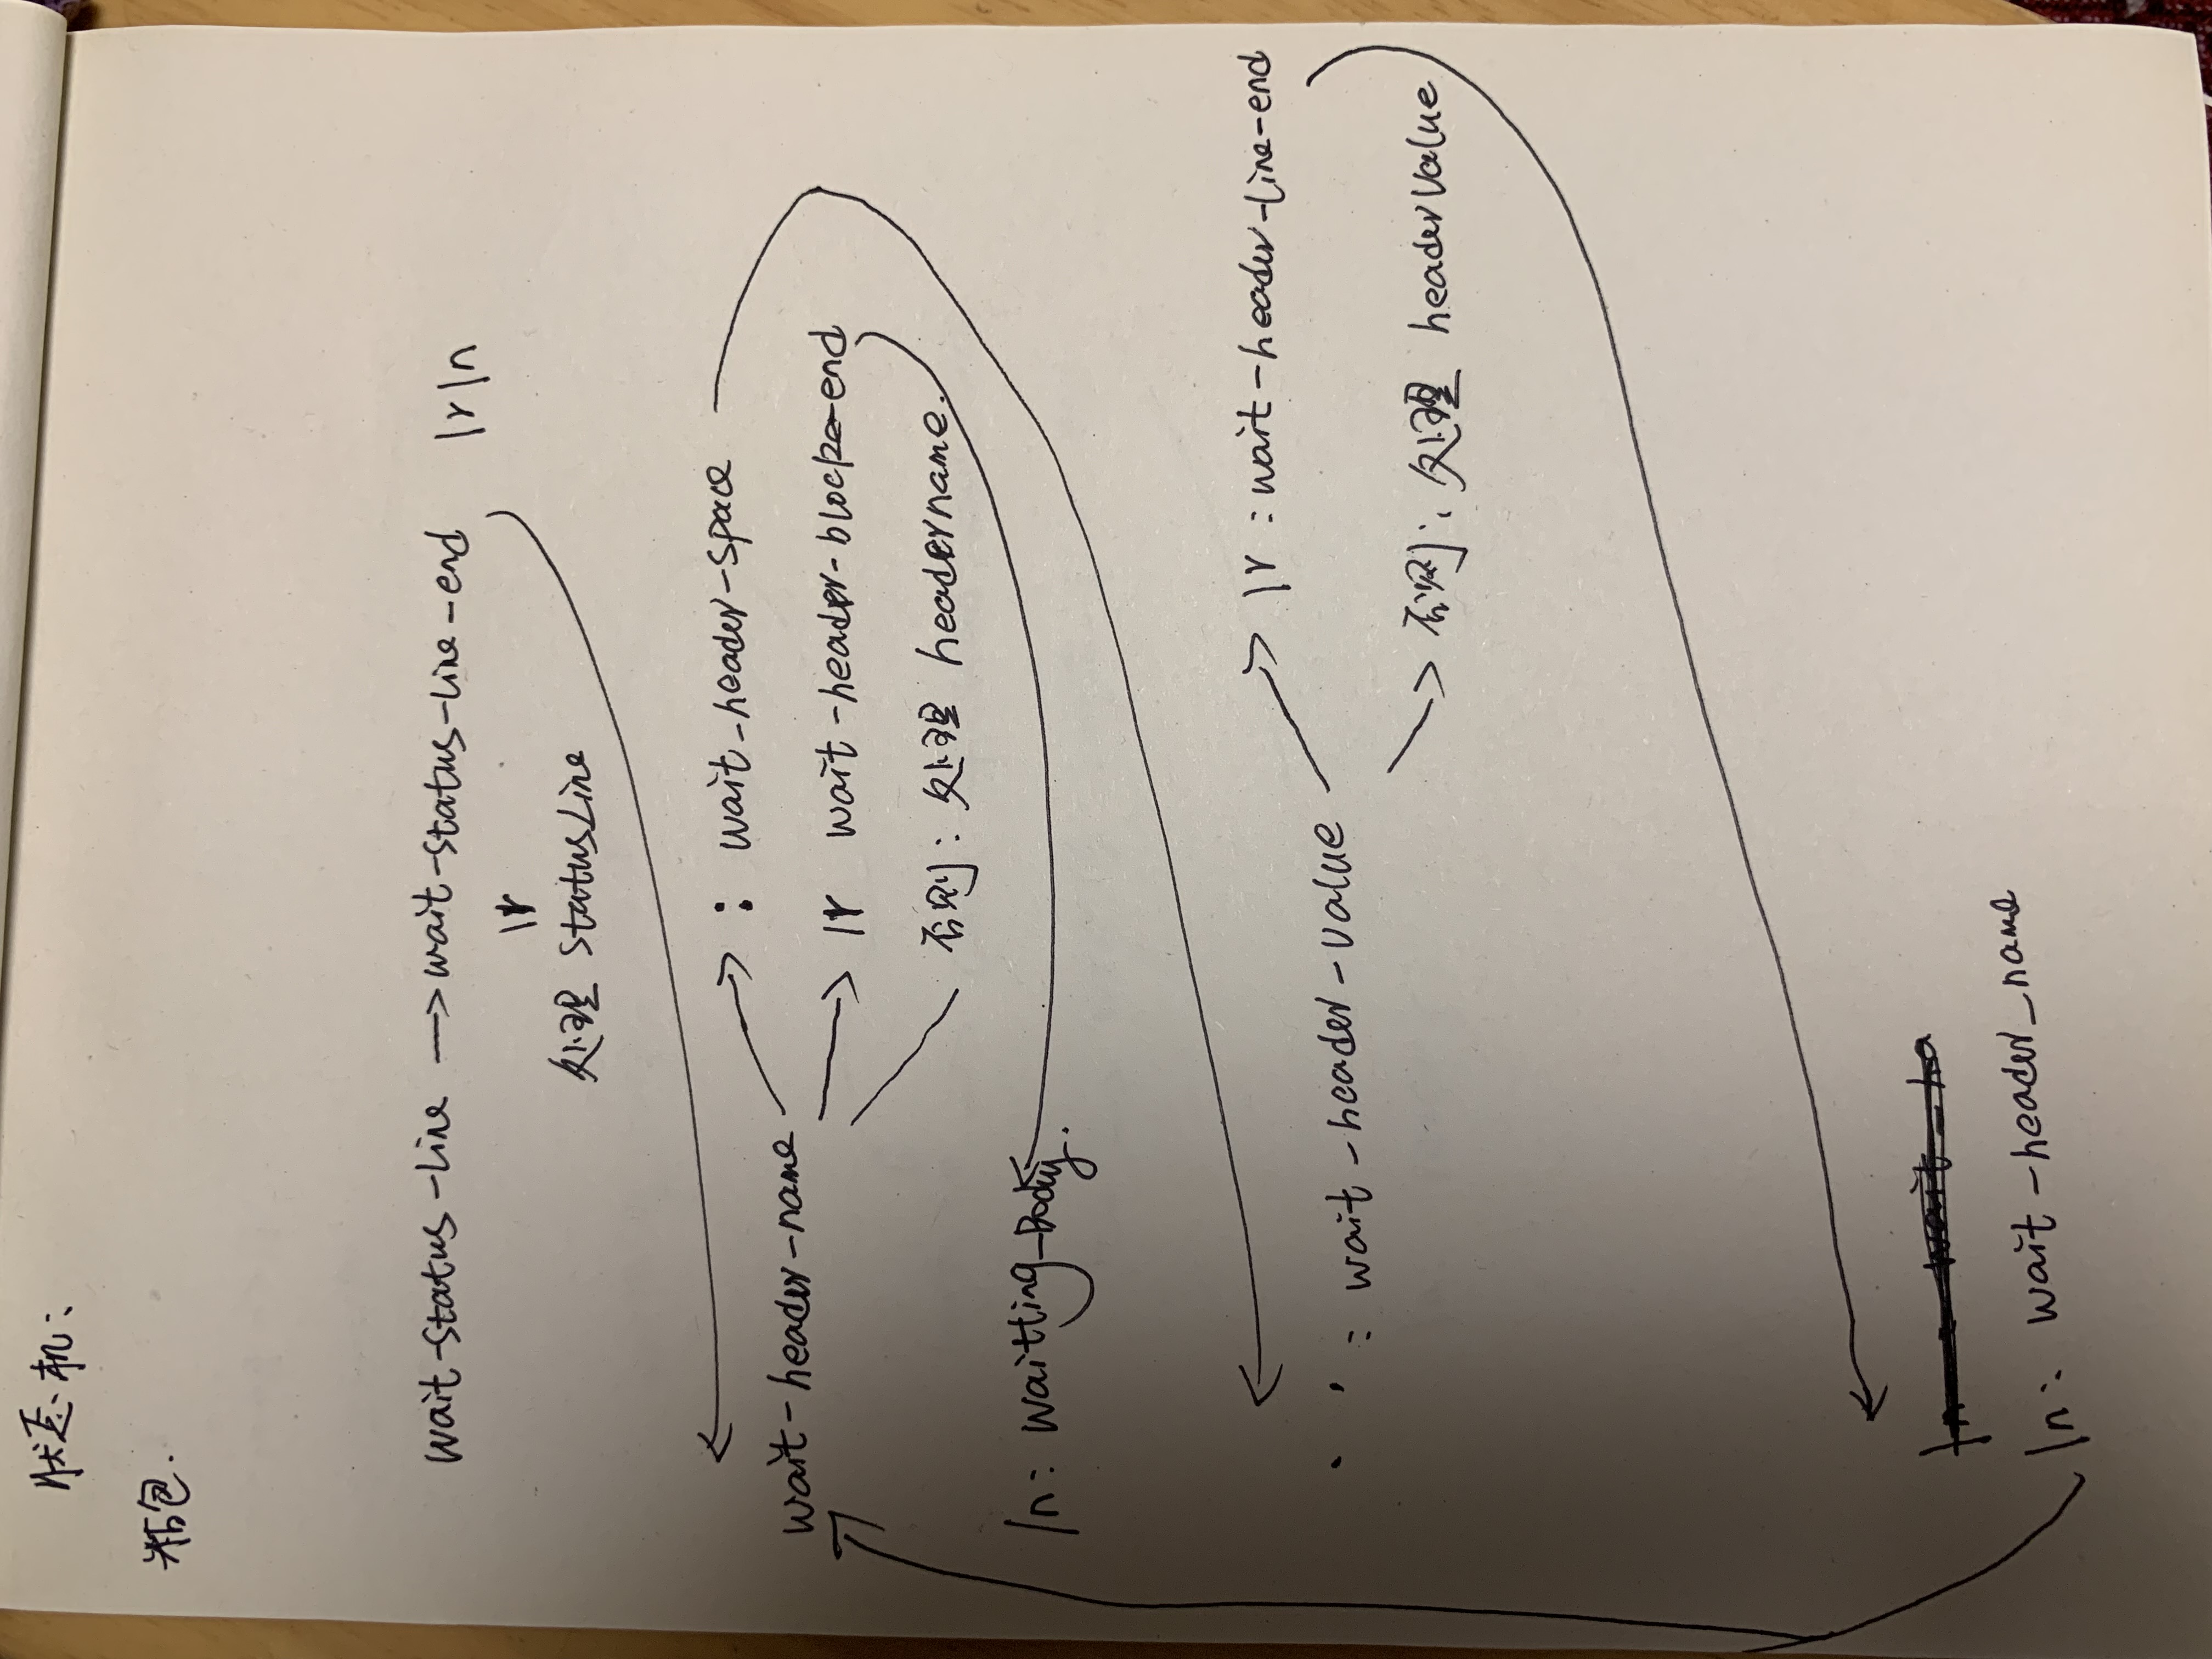 状态机：
粘包.
wait-status-line → wait-status-line-end \r\n
\r
处理 StatusLine
: wait_header-space
wait-header-name
\r wait-header-block-end
否则: 处理 headername.
\n: Waitting_Body.
\r : wait-header-line-end
' ' : wait-header-value
否则: 处理 headerValue
\n : wait_ha
\n: wait-header_name